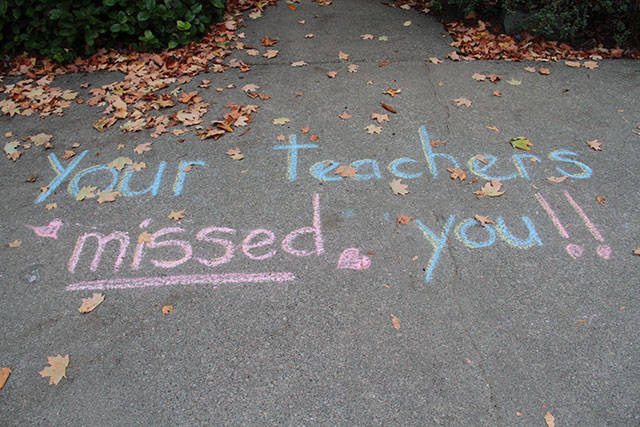 Your Teachers
missed you!!